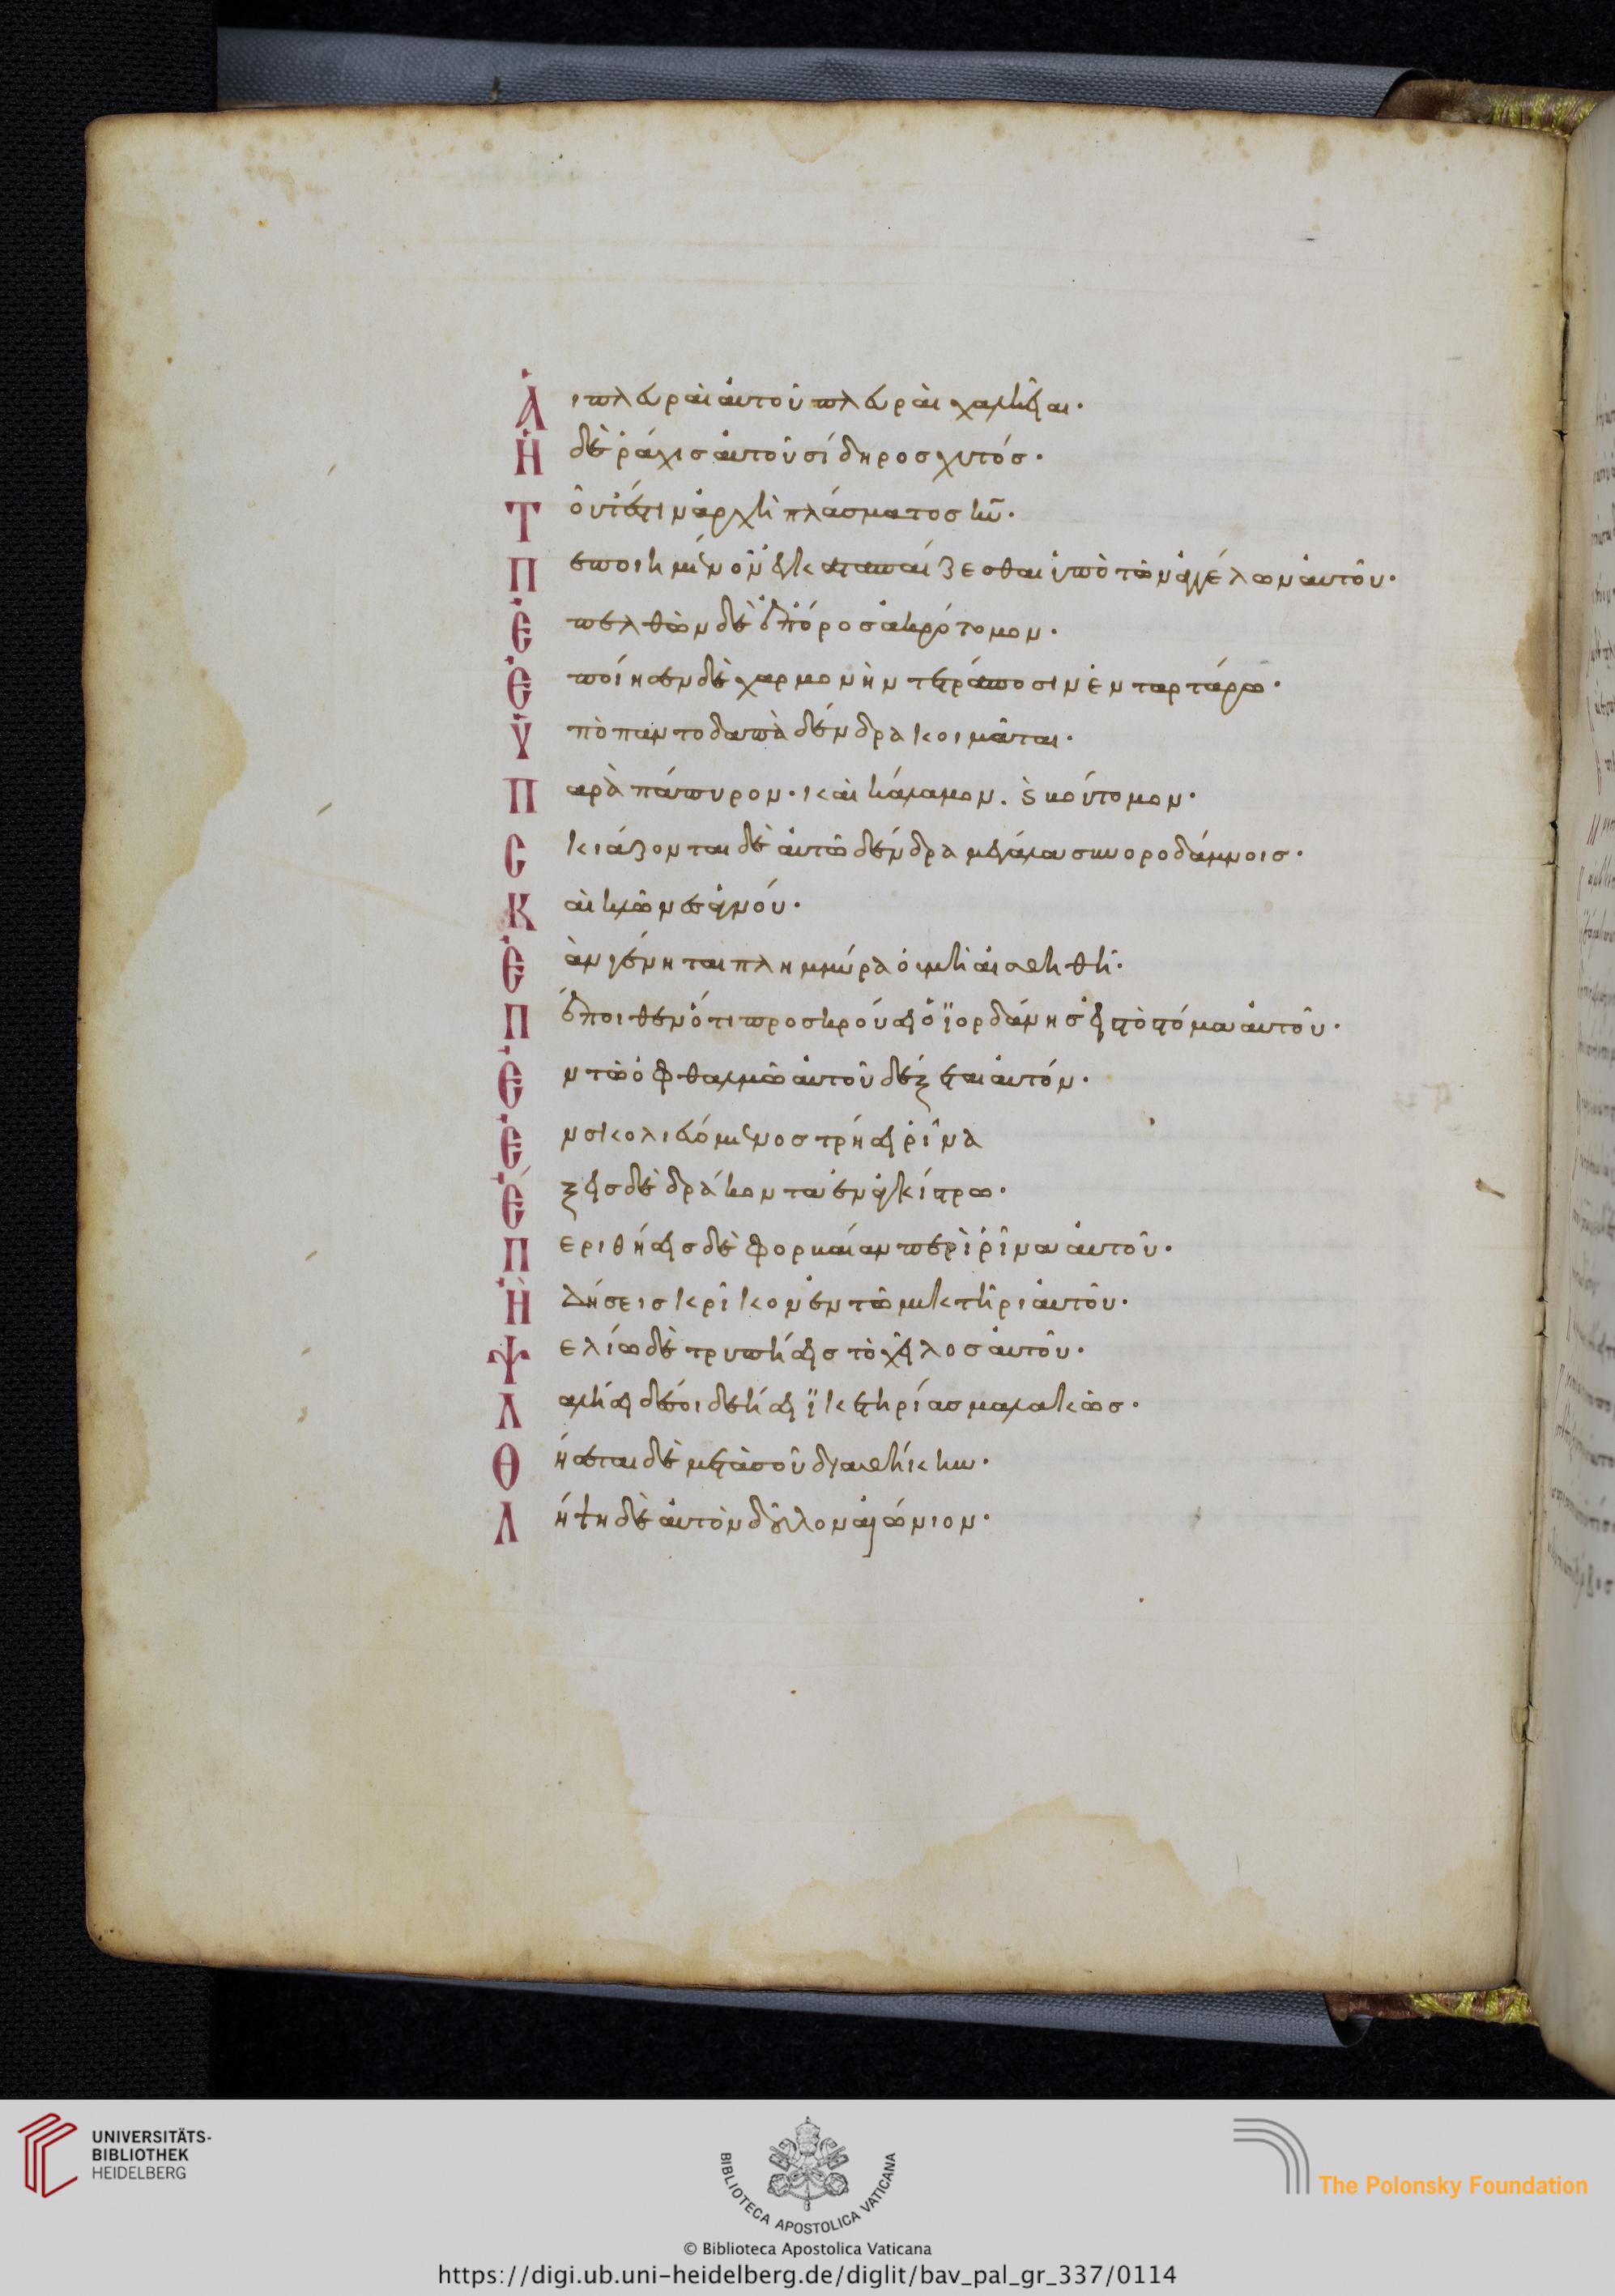 Ἁι πλευραὶ αὐτοῦ πλευραὶ χαλκαῖ·
Ἡ δὲ ῥάχις αὐτοῦ σίδηρος χυτός·
Τοῦτ' ἔστιν ἀρχὴ πλάσματος κ̅υ̅·
Πεποιημένον ἐγκαταπαίζεσθαι ὑπὸ τῶν ἀγγέλων αὐτοῦ·
Ἐπελθὼν δὲ ἐπ' ὄρος ἀκρότομον·
Ἐποίησεν δὲ χαρμονὴν τετράποσιν ἐν ταρτάρω·
Ὑπὸ παντοδαπὰ δένδρα κοιμᾶται·
Παρὰ πάπυρον· καὶ κάλαμον. ϛ κούτομον·
Σκιάζονται δὲ αὐτῶ δένδρα μεγάλα σὺν οροδάμνοις·
Καὶ κλῶνες ἀγνού·
Ἐὰν γένηται πλημμύρα ὀυ μὴ αἰσθηθῆ·
Πέποιθεν ὅτι προσκρούσει ὁ ϊορδάνης εἰς τὸ στόμα αὐτοῦ·
Ἐν τῶ ὀφθαλμῶ αὐτοῦ δέξεται αὐτόν·
Ἐνσκολιευόμενος τρήσει ῥῖνα
Ἔξεις δὲ δράκοντα ἐν ἀγκίστρω·
Περιθήσεις δὲ φορβαίαν περὶ ῥῖνα αὐτοῦ·
Ἢ δήσεις κρῖκον ἐν τῶ μυκτῆρι αὐτοῦ·
Ψελίω δὲ τρυπήσεις τὸ χεῖλος αὐτοῦ·
Λαλήσει δέ σοι δεήσει ϊκετηρίας μαλακῶς·
Θήσεται δὲ μετὰ σοῦ διαθήκην·
Λήψη δὲ αὐτὸν δοῦλον αἰώνιον·
UNIVERSITÄTS-
BIBLIOTHEK
HEIDELBERG
BIBLIOTECA APOSTOLICA VATICANA
The Polonsky Foundation
© Biblioteca Apostolica Vaticana
https://digi.ub.uni-heidelberg.de/diglit/bav_pal_gr_337/0114